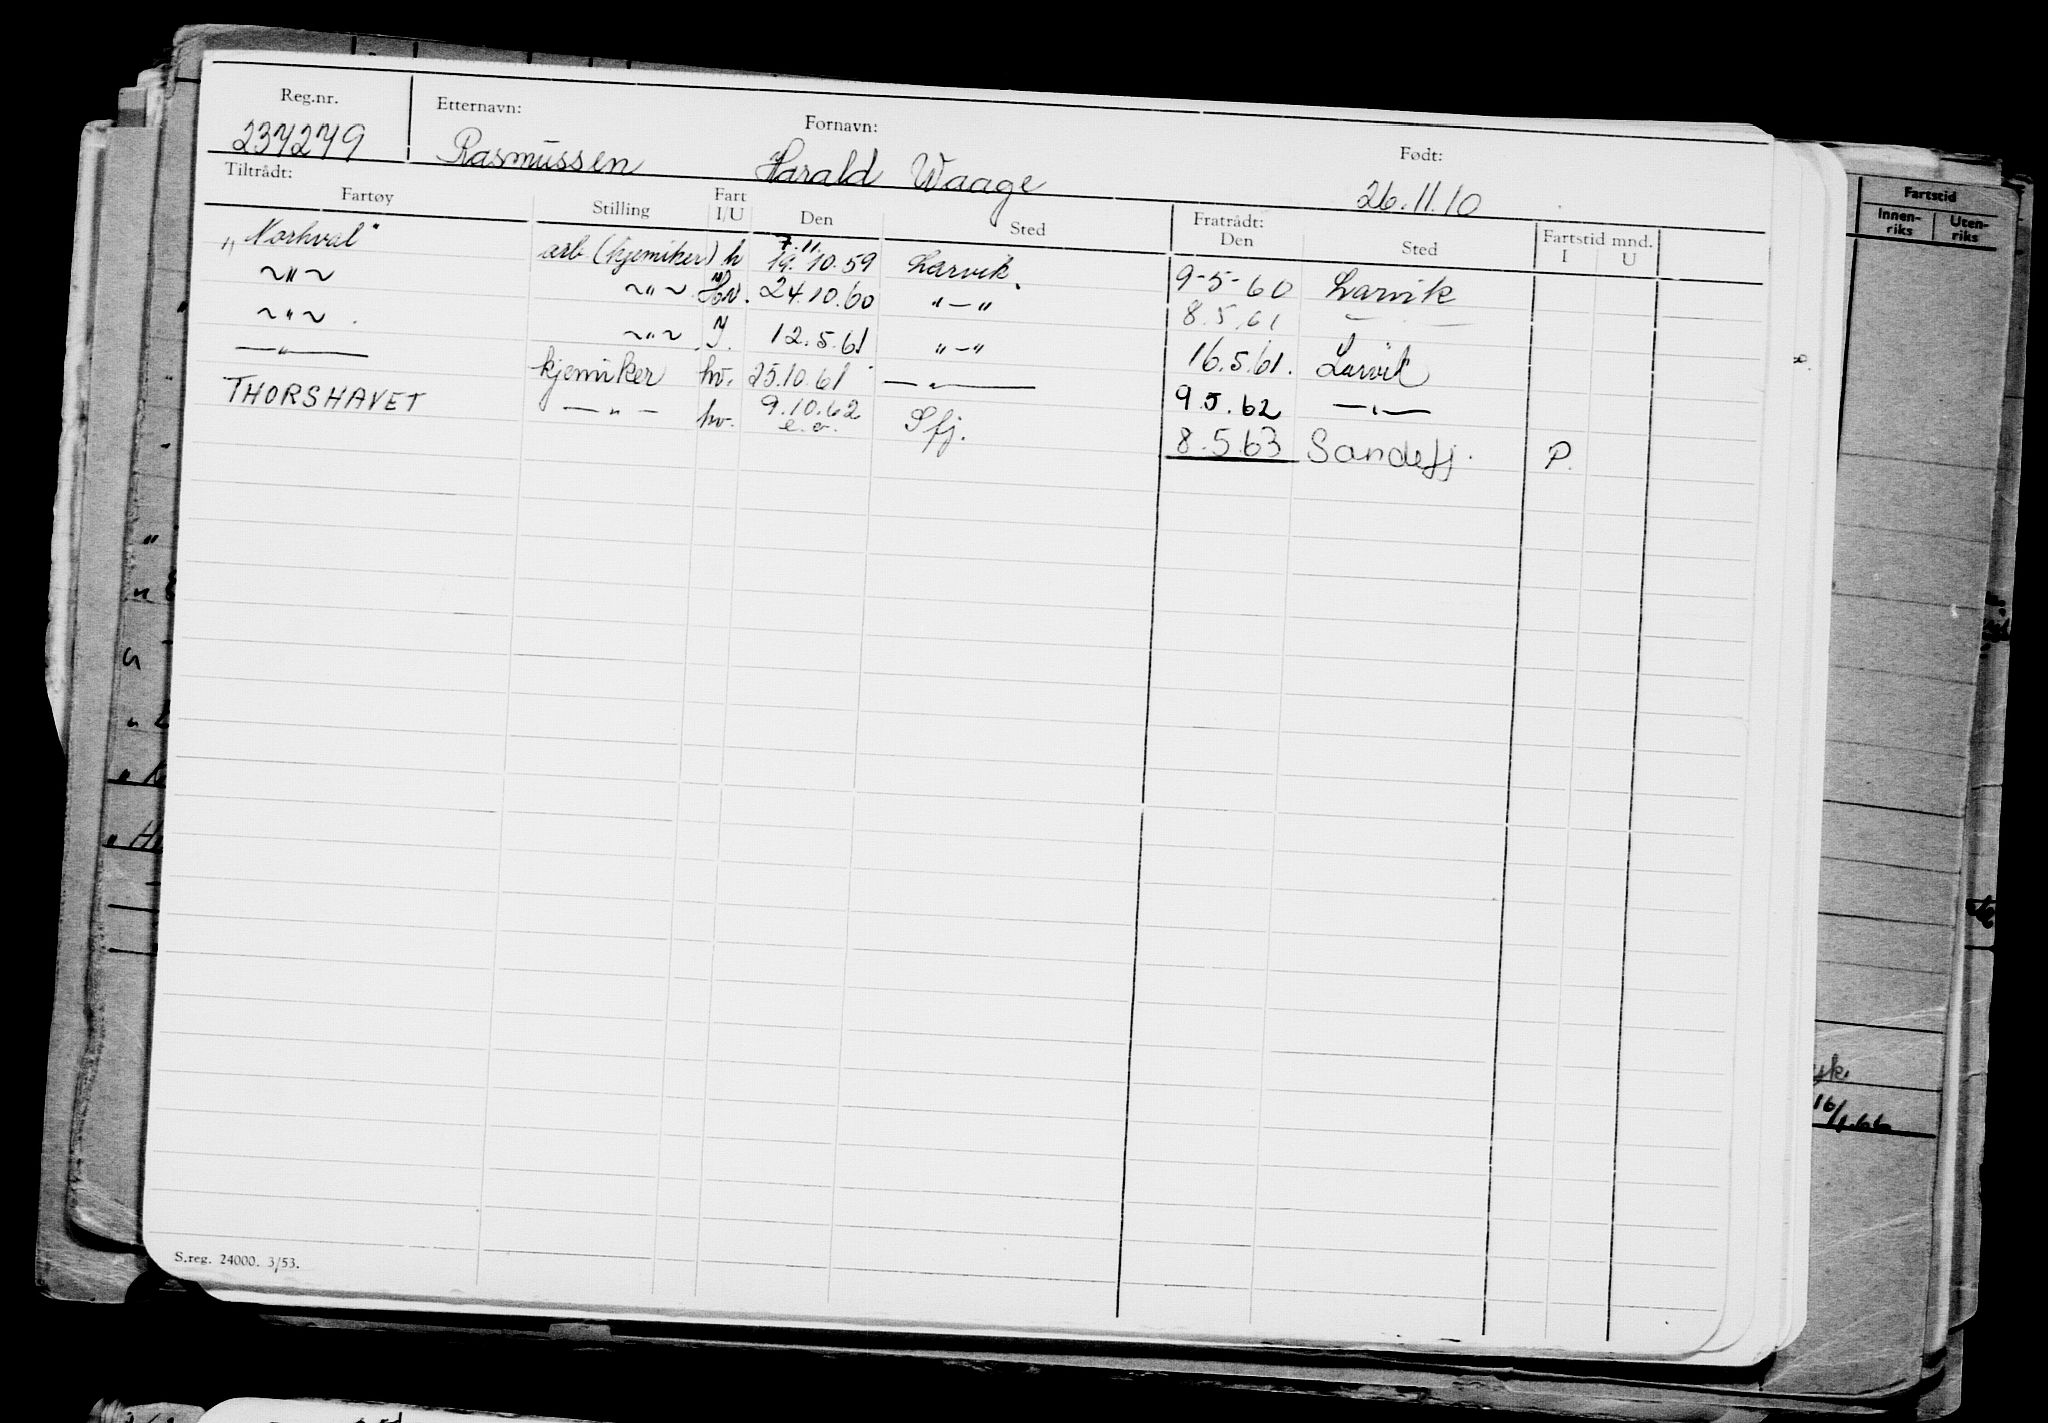 Reg.nr. Etternavn: Fornavn: Født:
237279 Rasmussen Harald Waage 26.11.10
Tiltrådt: Fratrådt:
Fartøy Stilling Fart I/U Den Sted Den Sted Fartstid mnd. I U
7.11.
"Norhval" arb. (kjemiker) h 19.10.59 Larvik. 9-5-60 Larvik
~"~ ~"~ Hv. 24.10.60 "-" 8.5.61 —
~"~ ~"~ J. 12.5.61 "-" 16.5.61. Larvik
—"— kjemiker hv. 25.10.61 —"— 9.5.62 —"—
THORSHAVET —"— hv. 9.10.62 Sfj. 8.5.63 Sandefj. P.
e.o.
S.reg. 24000. 3/53.
Fartstid
Innen-riks Uten-riks
16/1.66